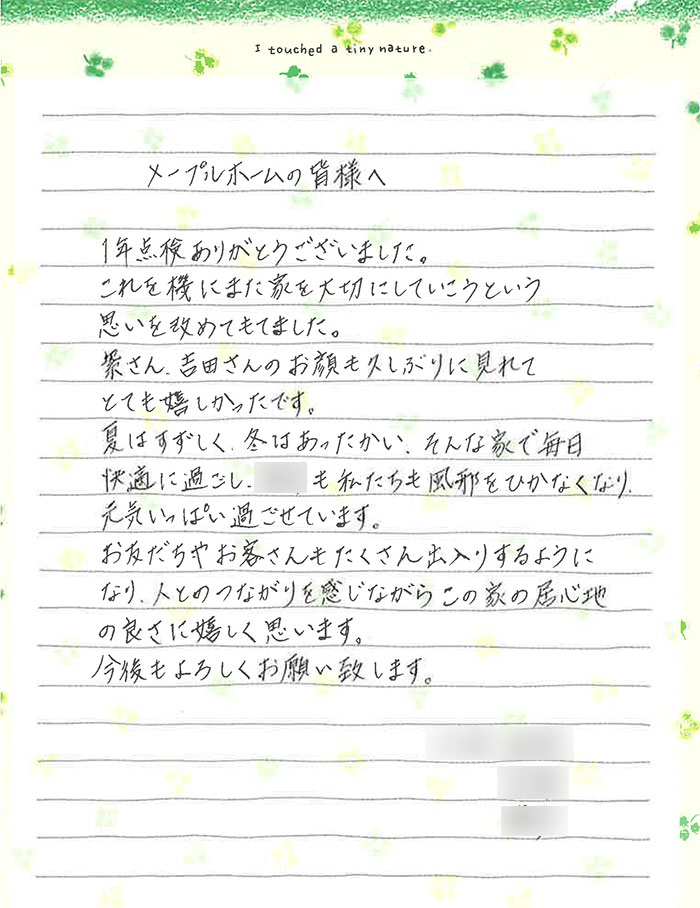 I touched a tiny nature.
メープルホームの皆様へ
1年点検ありがとうございました。
これを機にまた家を大切にしていこうという
思いを改めてもてました。
さん、吉田さんのお顔も久しぶりに見れて
とても嬉しかったです。
夏はすずしく、冬はあったかい、そんな家で毎日
快適に過ごし、も私たちも風邪をひかなくなり、
元気いっぱい過ごせています。
お友だちやお客さんもたくさん出入りするように
なり、人とのつながりを感じながらこの家の居心地
の良さに嬉しく思います。
今後もよろしくお願い致します。